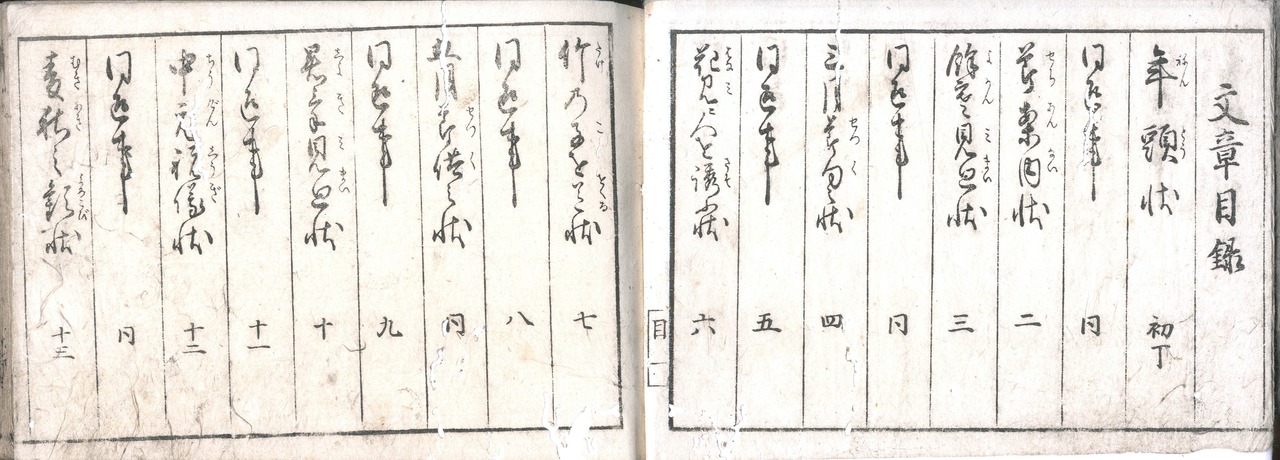 文章目録
年頭状 初丁
同返事 同
節案内状 二
餘寒見廻状 三
同返事 同
三月節句状 四
同返事 五
花見に人を誘ふ状 六
目
竹乃子を 状 七
同返事 八
五月節供之状 同
同返事 九
暑気見廻状 十
同返事 十一
中元祝儀状 十二
同返事 同
麦秋之歓状 十三